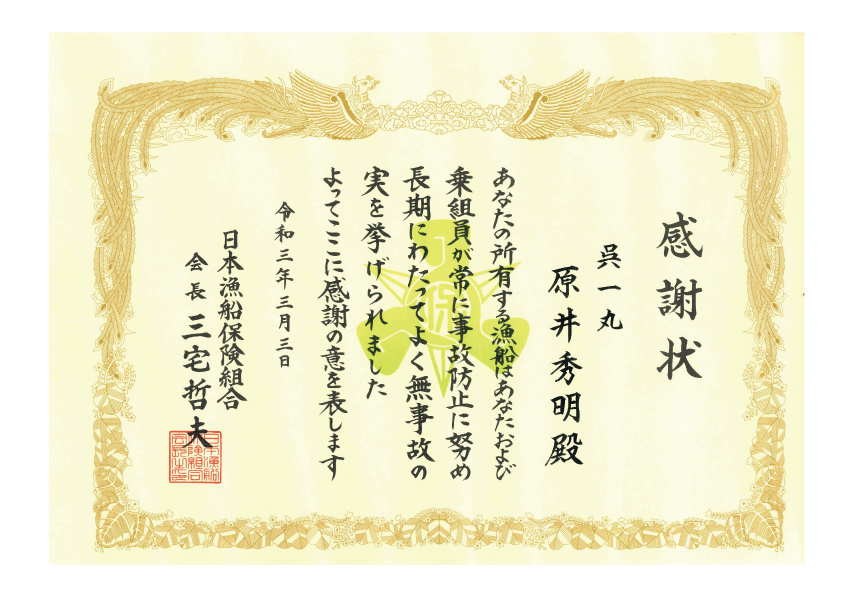 感謝状
呉一丸
原井秀明殿
あなたの所有する漁船はあなたおよび
乗組員が常に事故防止に努め
長期にわたってよく無事故の
実を挙げられました
よってここに感謝の意を表します
令和三年三月三日
日本漁船保険組合
会長 三宅哲夫